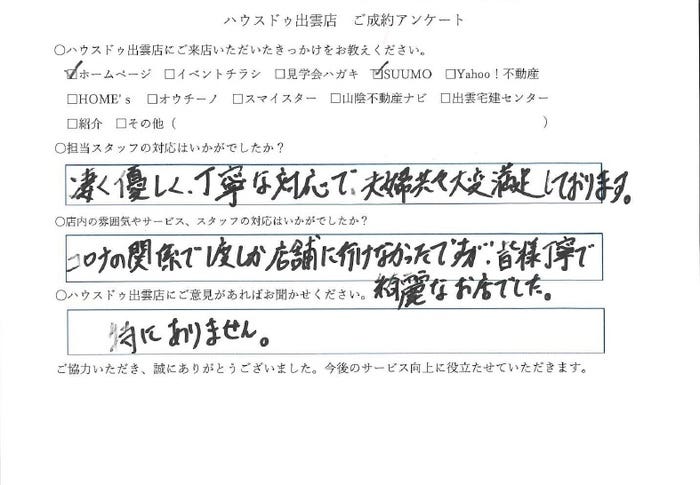 ハウスドゥ出雲店 ご成約アンケート
○ハウスドゥ出雲店にご来店いただいたきっかけをお教えください。
☑ホームページ □イベントチラシ □見学会ハガキ ☑SUUMO □Yahoo！不動産
□HOME's □オウチーノ □スマイスター □山陰不動産ナビ □出雲宅建センター
□紹介 □その他（ ）
○担当スタッフの対応はいかがでしたか？
凄く優しく、丁寧な対応で、夫婦共々大変満足しております。
○店内の雰囲気やサービス、スタッフの対応はいかがでしたか？
コロナの関係で1度しか店舗に行けなかったですが、皆様丁寧で
綺麗なお店でした。
○ハウスドゥ出雲店にご意見があればお聞かせください。
特にありません。
ご協力いただき、誠にありがとうございました。今後のサービス向上に役立たせていただきます。